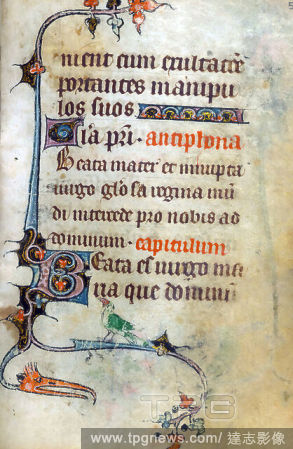 nient cum exultacōe
portantes manipu
los suos
Gl̄a pr̄i. antiphona
Beata mater et innupta
uirgo glōsa regina mū
di intercede pro nobis ad
dominum. capitulum
Beata es uirgo ma
ria que dominū
TPG
www.tpgnews.com / 達志影像